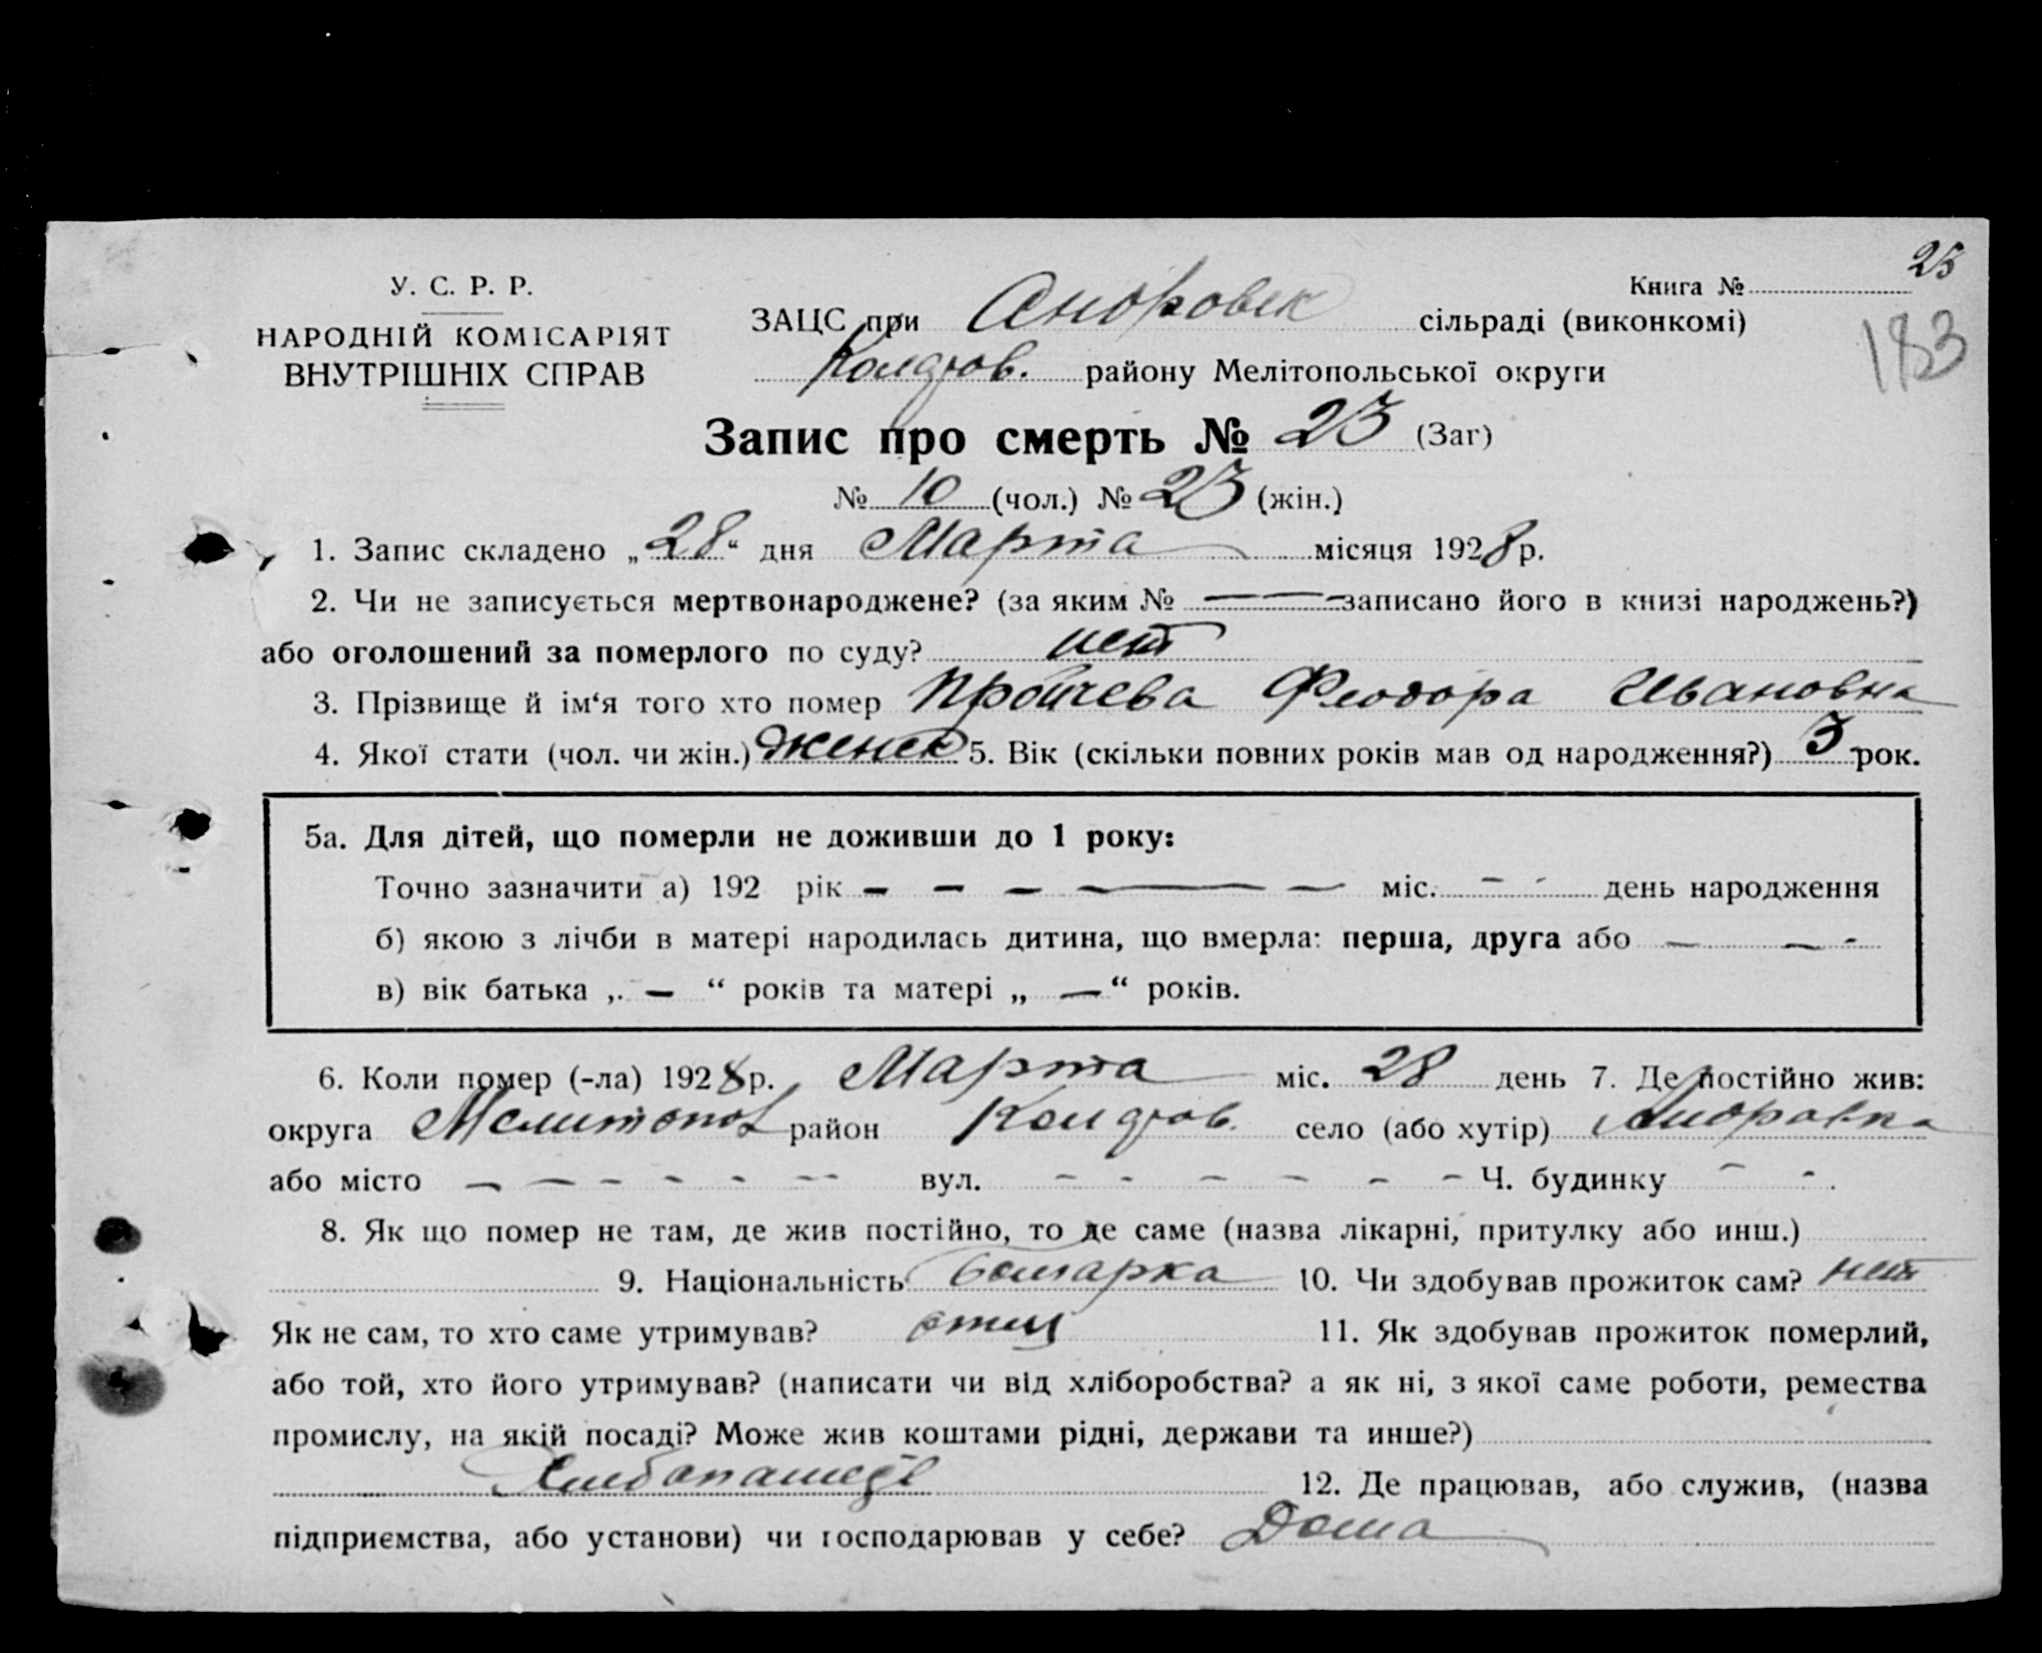 25
У. С. Р. Р.
Книга №
НАРОДНІЙ КОМІСАРІЯТ
ВНУТРІШНІХ СПРАВ
ЗАЦС при Андровск сільраді (виконкомі)
183
районy Мелітопольської округи
Запис про смерть № 23 (Заг)
№ 10 (чол.) № 23 (жін.)
1. Запис складено „28“ дня Марта місяця 1928 р.
2. Чи не записується мертвонароджене? (за яким № — записано його в книзі народжень?)
або оголошений за померлого по суду? нет
3. Прізвище й ім‘я того хто помер Пройчева Феодора Ивановна
4. Якої стати (чол. чи жін.) женск 5. Вік (скільки повних років мав од народження?) 3 рок.
5а. Для дітей, що померли не доживши до 1 року:
Точно зазначити а) 192 рік — — — — — міс. - - день народження
б) якою з лічби в матері народилась дитина, що вмерла: перша, друга або — — -
в) вік батька „ — “ років та матері „ — “ років.
6. Коли помер (-ла) 1928 р. Марта міс. 28 день 7. Де постійно жив:
округа Мелитопол район село (або хутір) Андровка
або місто — — — - - - вул. - - - - - - Ч. будинку - -
8. Як що помер не там, де жив постійно, то де саме (назва лікарні, притулку або инш.)
9. Національність болгарка 10. Чи здобував прожиток сам? нет
Як не сам, то хто саме утримував? отец 11. Як здобував прожиток померлий,
або той, хто його утримував? (написати чи від хліборобства? а як ні, з якої саме роботи, ремества
промислу, на якій посаді? Може жив коштами рідні, держави та инше?)
12. Де працював, або служив, (назва
підприємства, або установи) чи господарював у себе? Дома